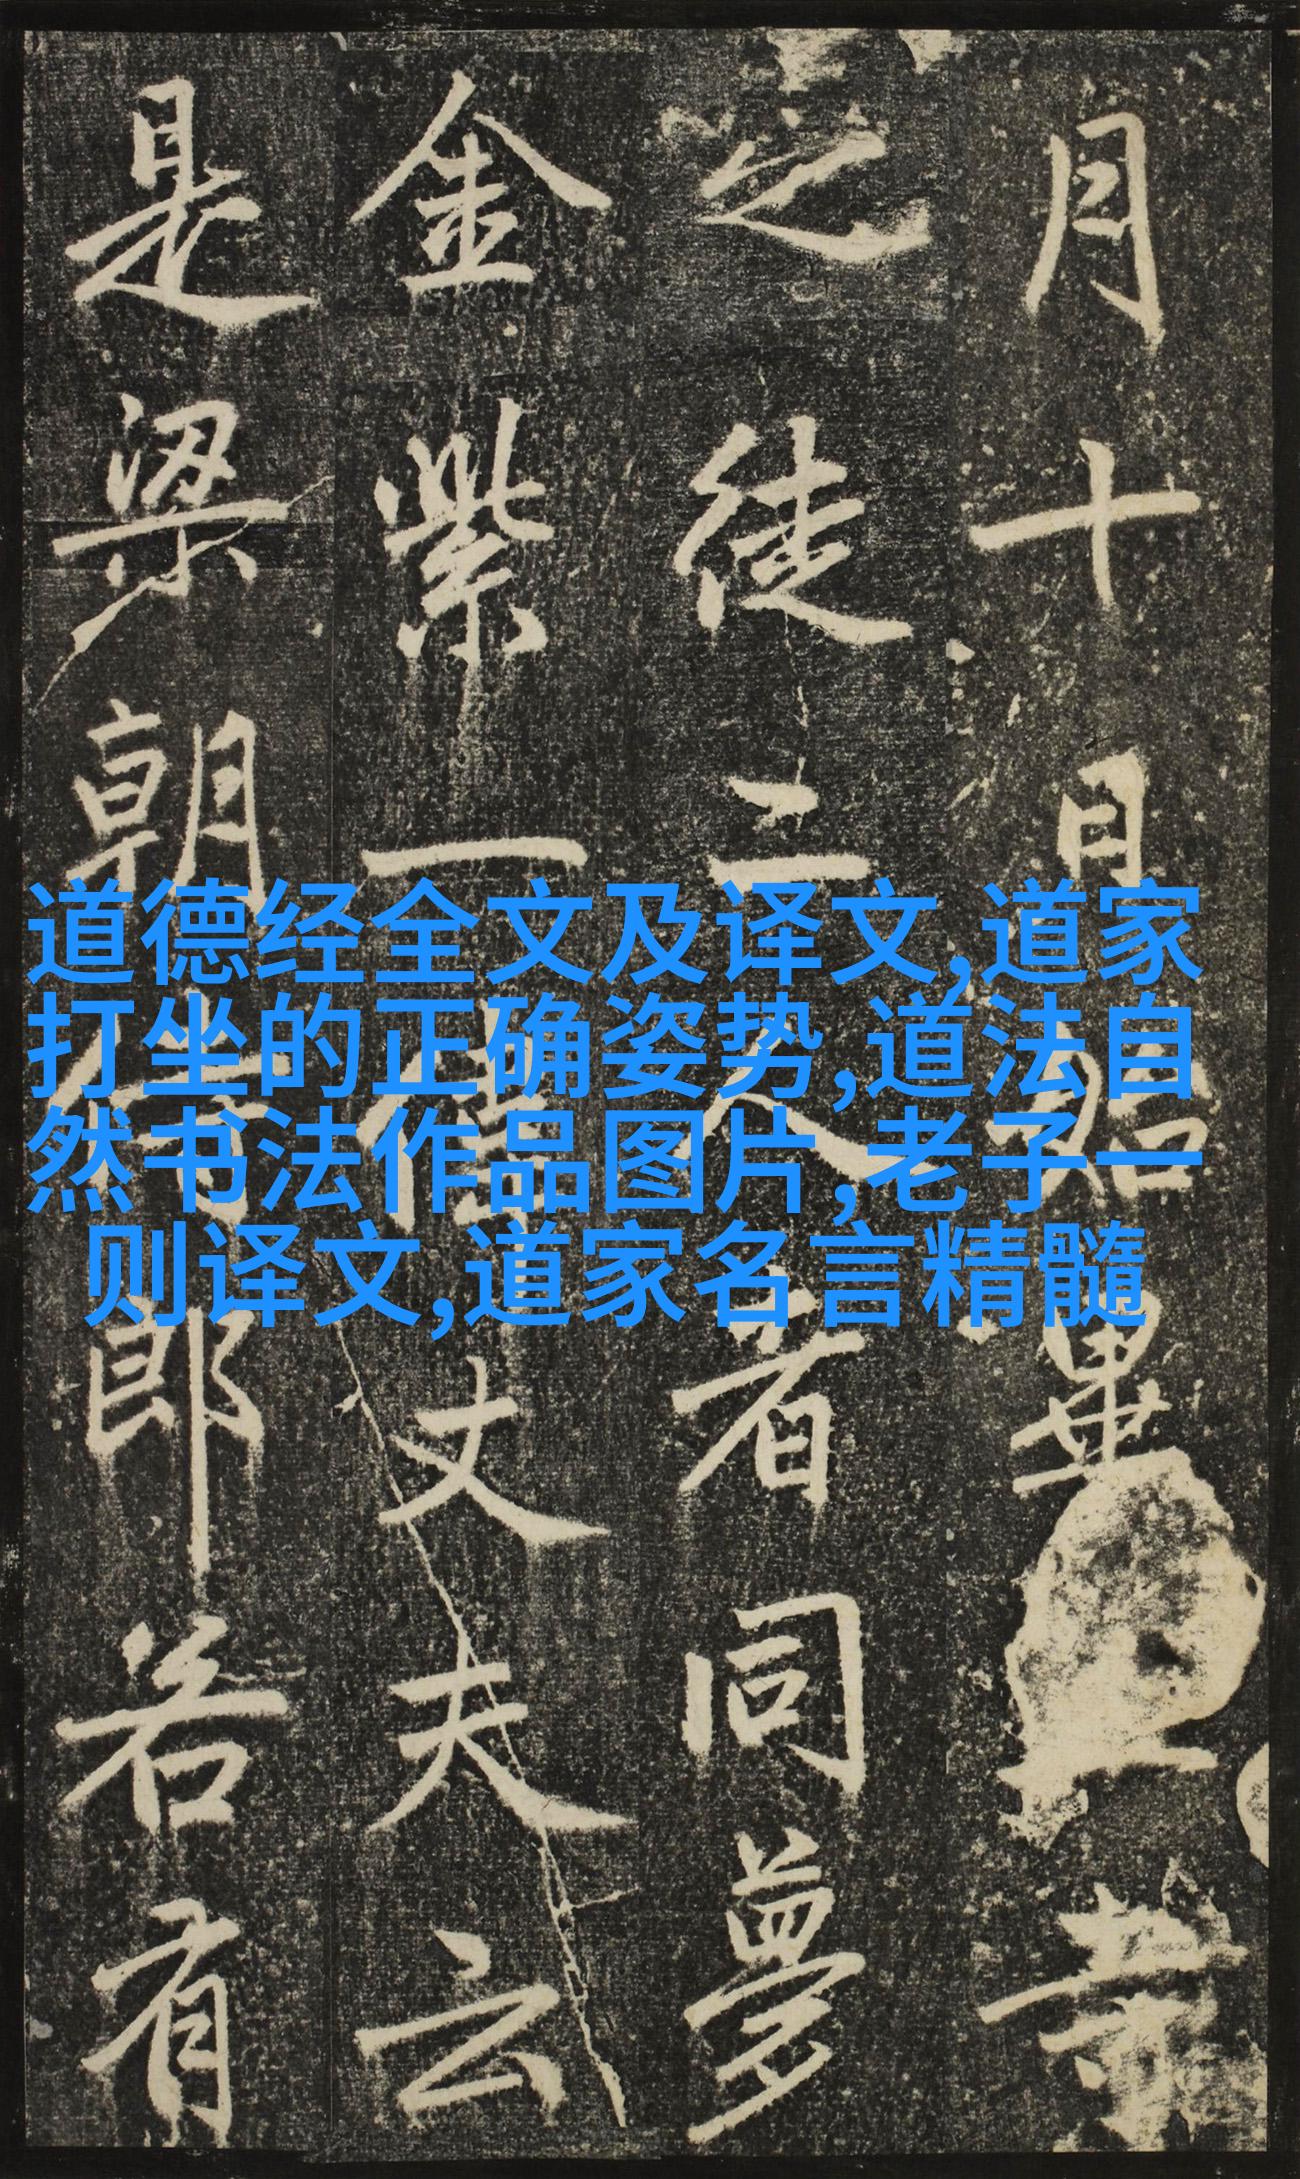 月十日始畢
之徒二人者同夢
金紫一僧丈夫云
是梁朝侍郎若有
道德经全文及译文,道家
打坐的正确姿势,道法自
然书法作品图片,老子一
则译文,道家名言精髓